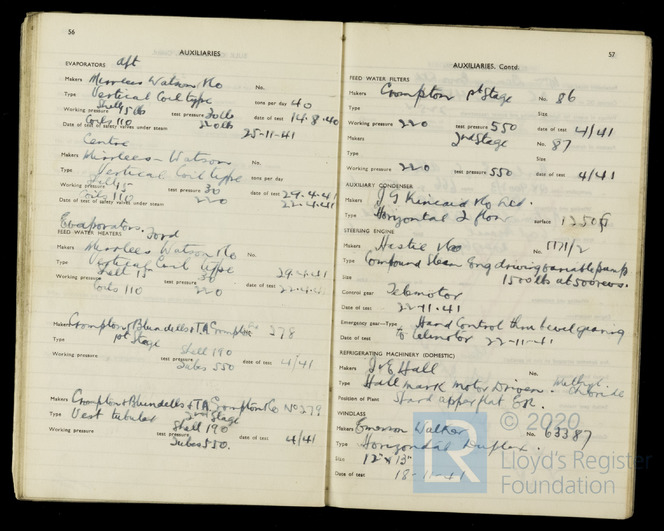 56
AUXILIARIES
EVAPORATORS aft
Makers Mirrlees Watson & Co No.
Type Vertical Coil type tons per day 40
Working pressure Shell 15 lb test pressure 30 lb date of test 14-8-40
Coils 110 220 lb
Date of test of safety valves under steam 25-11-41
Centre
Makers Mirrlees-Watson No.
Type Vertical Coil type tons per day
Working pressure 15 test pressure 30 date of test 29-4-41
Coils 110 220 22-4-41
Date of test of safety valves under steam
Evaporators. Ford
FEED WATER HEATERS
Makers Mirrlees Watson & Co No.
Type Vertical Coil type 29-4-41
Working pressure Shell 15 30
Coils 110 test pressure 220 date of test 22-4-41
Makers Crompton & Blundells & TA Crompton 278
Type 1st Stage
Working pressure Shell 190 test pressure date of test 4/41
Tubes 550
Makers Crompton & Blundells & TA Crompton & Co No 279
Type Vert tubular 2nd Stage
Working pressure Shell 190 test pressure date of test 4/41
Tubes 550.
57
AUXILIARIES, Contd.
FEED WATER FILTERS
Makers Crompton 1st Stage No. 86
Type Size
Working pressure 220 test pressure 550 date of test 4/41
Makers 2nd Stage No. 87
Type Size
Working pressure 220 test pressure 550 date of test 4/41
AUXILIARY CONDENSER
Makers J G Kincaid & Co Ltd.
Type Horizontal 2 flow surface 1250
STEERING ENGINE
Makers Hastie & Co No. 1171/2
Type Compound Steam Eng driving variable pump
Size 1500 lbs at 500 revs.
Control gear Telemotor
Date of test 22-11-41
Emergency gear—Type. Hand Control thro bevel gearing
to Telemotor 22-11-41
REFRIGERATING MACHINERY (DOMESTIC)
Makers J & E Hall
Type Hallmark motor Driven. Methyl Chloride
Position of Plant Starbd upper flat
WINDLASS
Makers Emerson Walker No. 63387
Type Horizontal Duplex.
Size 12" x 13"
Date of test 18-11-41
© 2020
Lloyd's Register
Foundation